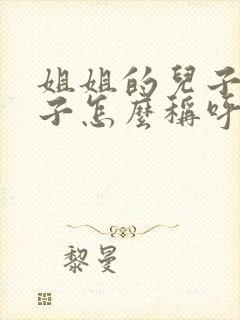 姐姐的兒子
子怎麼稱呼
黎曼